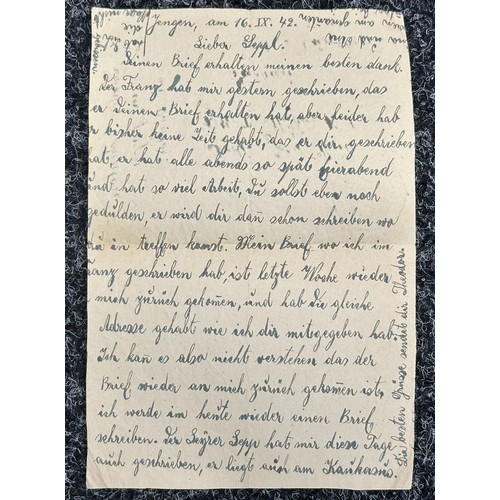 Jengen, am 16.IX.42.
Lieber Seppl.
Deinen Brief erhalten meinen besten dank.
Der Franz hab mir gestern geschrieben, das
er deinen Brief erhalten hat, aber leider hab
er bisher keine Zeit gehabt, das er dir geschrieben
hat, er hat alle abends so spät feierabend
und hat so viel Arbeit, du sollst eben noch
gedulden, er wird dir dan̄ schon schreiben wo
du in treffen kanst. Mein Brief wo ich im
Franz geschrieben hab, ist letzte Woche wieder
mich zurück gekom̄en, und hab die gleiche
Adresse gehabt wie ich dir mitgegeben hab.
Ich kan̄ es also nicht verstehen das der
Brief wieder an mich zurück gekom̄en ist,
ich werde im heute wieder einen Brief
schreiben. Der Seÿrer Sepp hat mir diese Tage
auch geschrieben, er liegt auch am Kaukasus.
Die besten Grüsse sendet dir Theodor.